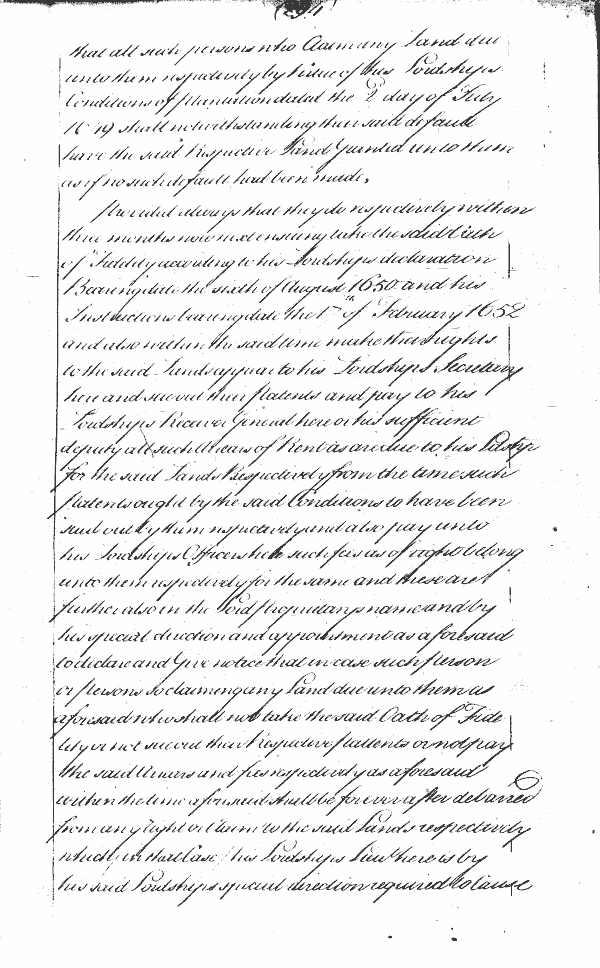 that all such persons who Claim any Land due
unto them respectively by Virtue of his Lordships
Conditions of plantation dated the 2 day of July
1649 shall notwithstanding their said default
have the said Respective Land Granted unto them
as if no such default had been made.
Provided always that they do respectively within
three months now next ensuing take the said Oath
of Fidelity according to his Lordships declaration
Bearing date the sixth of August 1650 and his
Instructions bearing date the 1st of February 1652
and also within the said time make their rights
to the said Lands appear to his Lordships Secretary
here and sue out their patents and pay to his
Lordships Receiver General here or his sufficient
deputy all such Arrears of Rent as are due to his Lordship
for the said Lands Respectively from the time such
patents ought by the said Conditions to have been
sued out by them respectively and also pay unto
his Lordships Officers here such fees as of right belong
unto them respectively for the same and these are
further also in the Lord proprietarys name and by
his special direction and appointment as aforesaid
to declare and Give notice that in case such person
or persons so claiming any Land due unto them as
aforesaid who shall not take the said Oath of Fide
lity or not sue out their Respective patents or not pay
the said Arrears and fees respectively as aforesaid
within the time aforesaid shall be for ever after debarred
from any right or Claim to the said Lands respectively
which in that Case his Lordships Lieut here is by
his said Lordships special direction required to Cause